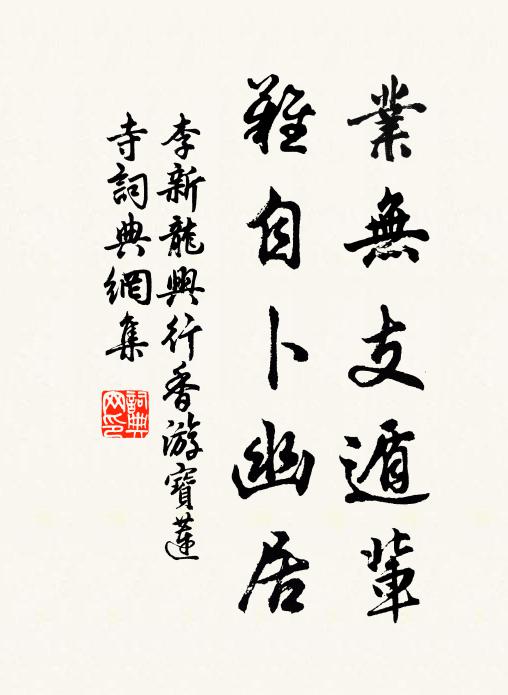 業無支遁輩
難自卜幽居
李新龍興行香游寶蓮
寺詞典網集
詞典网印